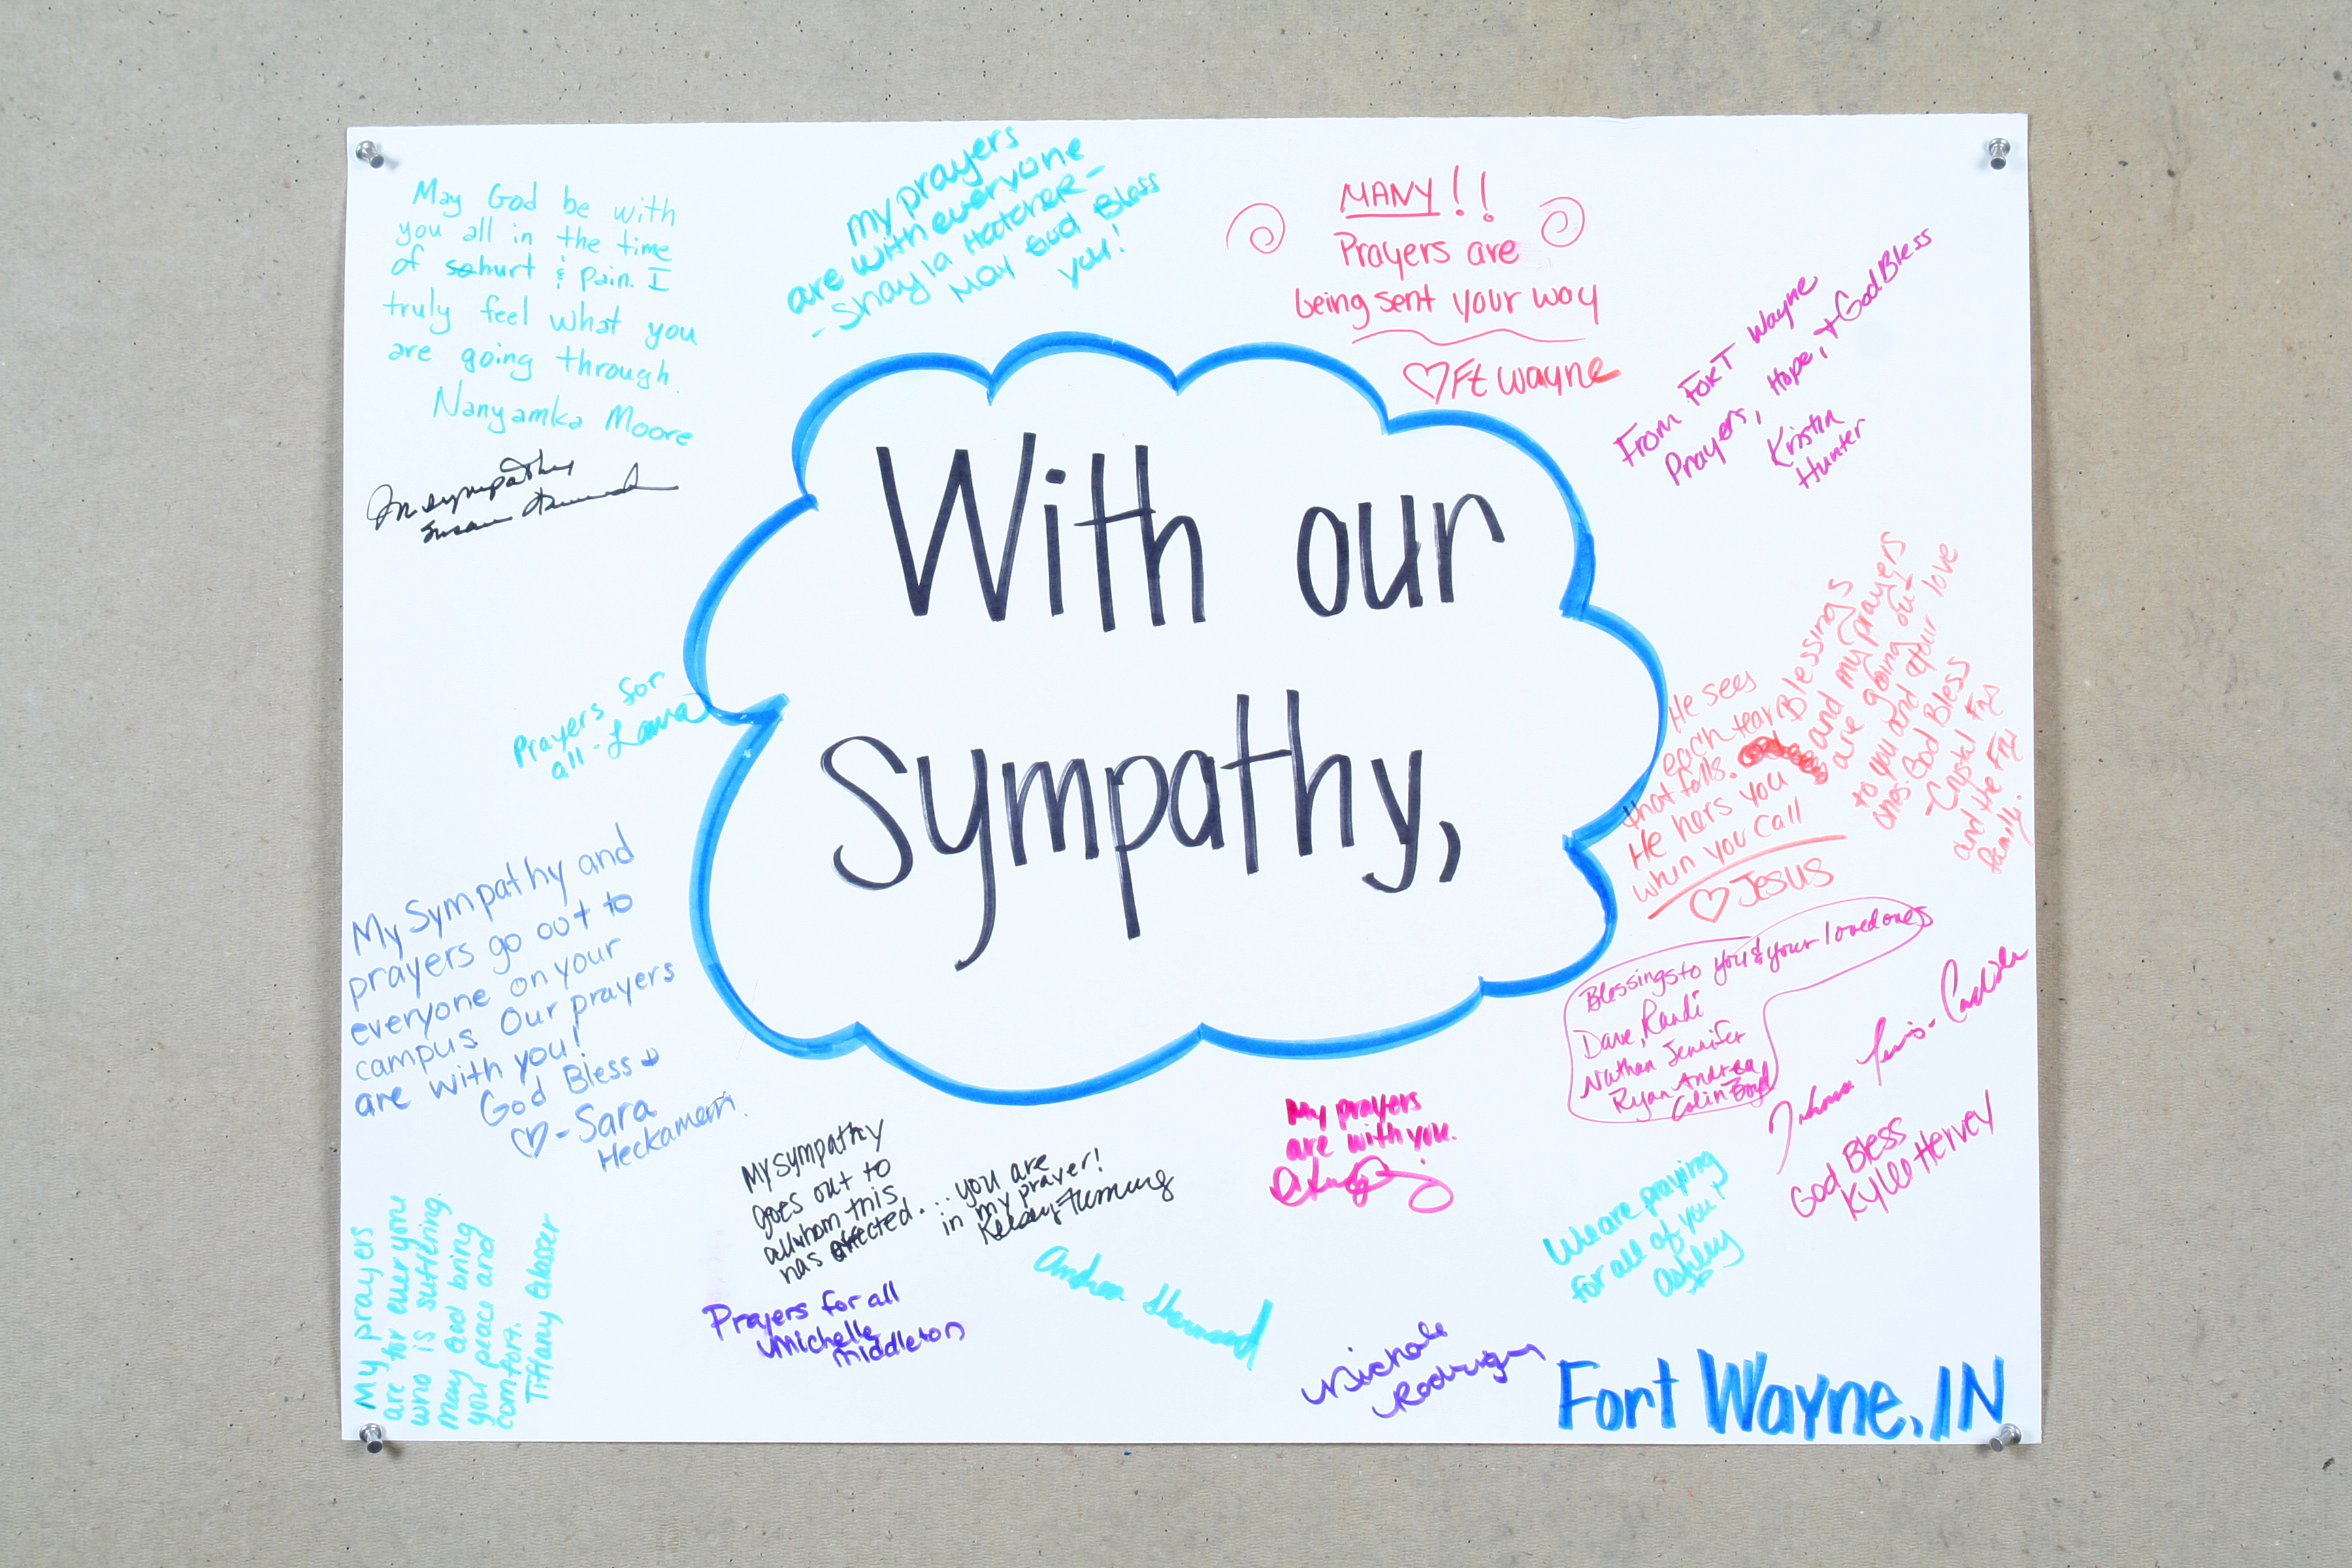 With our
Sympathy,
May God be with
you all in the time
of hurt & pain. I
truly feel what you
are going through.
Nanyamka Moore
In sympathy
Susan
my prayers
are with everyone
- Shayla Hatcher -
May God Bless
you!
MANY!!
Prayers are
being sent your way
♡ Ft Wayne
From Fort Wayne
Prayers, Hope, + God Bless
Kristin
Hunter
Prayers for
all - Laura
He sees
each tear
that falls.
He hers you
when you call
♡ Jesus
Blessings
and my prayers
are going out
to you and your love
ones. God Bless
- Crystal Fry
and the Fry
family.
My Sympathy and
prayers go out to
everyone on your
campus. Our prayers
are with you!
God Bless
♡ - Sara
Heckaman
Blessings to you & your loved ones
Dave, Randi
Nathan Jennifer
Ryan Andrea
Colin Boyd
God Bless
Kylee Hervey
My prayers
are with you.
My sympathy
goes out to
all whom this
has affected... you are
in my prayer!
Kelsey Fleming
We are praying
for all of you!
Ashley
My prayers
are for everyone
who is suffering.
May God bring
you peace and
comfort.
Tiffany Glasser
Prayers for all
Michelle
Middleton
Andrea
Nichole
Rodriguez
Fort Wayne, IN